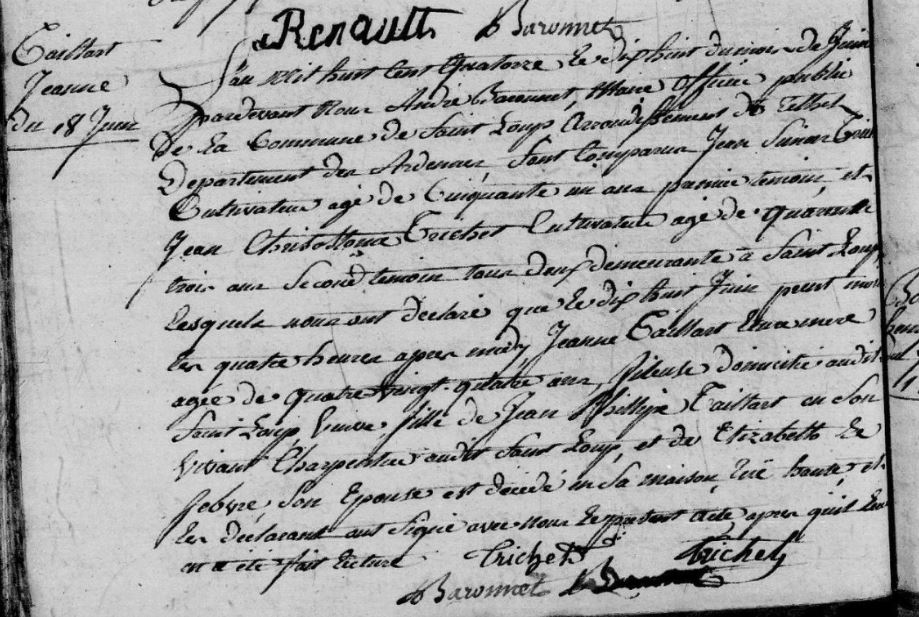 Renault Baronnet
Taillart
Jeanne
du 18 Juin
L'an mil huit cent Quatorze le dix huit du mois de Juin
pardevant Nous André Baronnet, Maire Officier public
De la Commune de Saint Loup, Arrondissement de
Departement des Ardennes, Sont Comparus Jean Simon
Cultivateur agé de Cinquante un ans premier temoin, et
Jean Trichet Cultivateur agé de quarante
trois ans Second temoin tous deux demeurants à Saint Loup
Lesquels nous ont déclaré que le dix huit Juin present mois
les quatre heures apres midy, Jeanne Taillart Leure mere
agée de quatre vingt quatre ans, fileuse domicilié audit
Saint Loup, Veuve fille de Jean Phillipe Taillart en Son
Vivant Charpentier audit Saint Loup, et de Elizabeth Le
febvre, Son Epouse est décédé en Sa maison, Rüe haute, et
Les déclarant ont Signé avec nous le present acte apres qu'il Leur
en a été fait Lecture Trichet Trichet
Baronnet